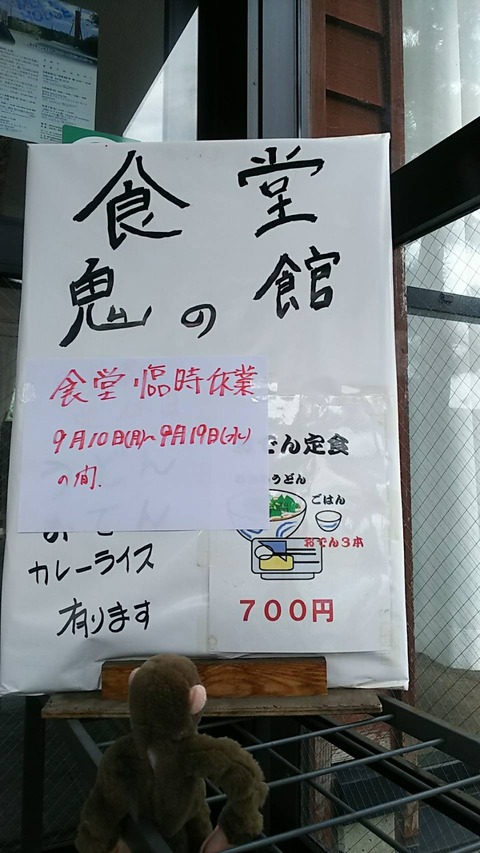 食堂
鬼の館
食堂臨時休業
9月10日(月)~9月19日(水)
の間.
カレーライス
有ります
でん定食
うどん
ごはん
おでん3本
700円